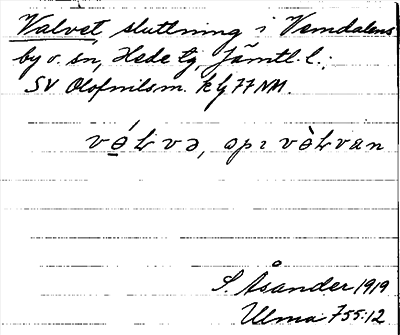 Valvet, sluttning i Vemdalens
by o. sn, Hede tg, Jämtl. l.
SV Olofnilsm. kfg 77 NM.
vǝ́Ƚvǝ, op: vǝ̀Ƚvan
S. Åsander 1919
Ulma 755:12